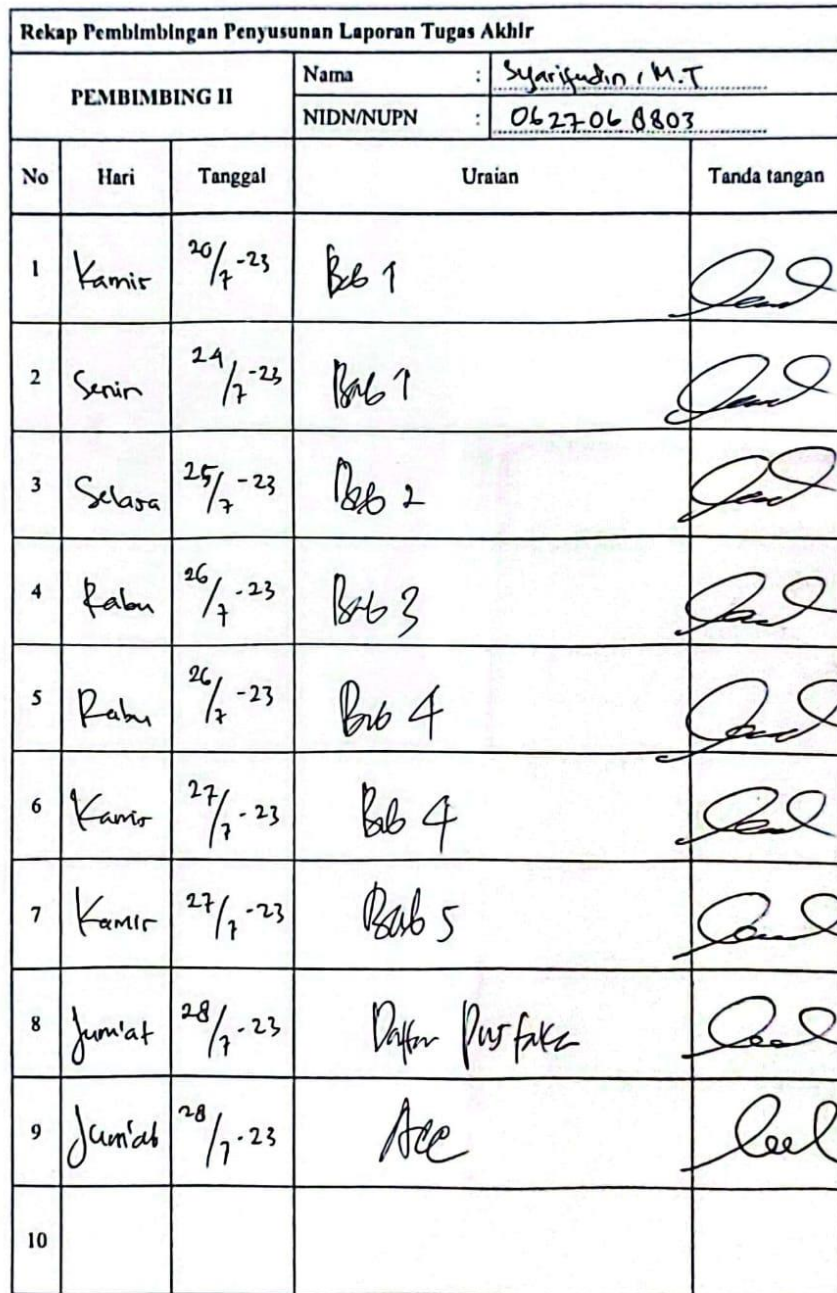 Rekap Pembimbingan Penyusunan Laporan Tugas Akhir
PEMBIMBING II
Nama : Syarifudin, M.T
NIDN/NUPN : 0627068803
No Hari Tanggal Uraian Tanda tangan
1 Kamis 20/7-23 Bab 1
2 Senin 24/7-23 Bab 1
3 Selasa 25/7-23 Bab 2
4 Rabu 26/7-23 Bab 3
5 Rabu 26/7-23 Bab 4
6 Kamis 27/7-23 Bab 4
7 Kamis 27/7-23 Bab 5
8 Jum'at 28/7-23 Daftar Pustaka
9 Jum'at 28/7-23 Acc
10